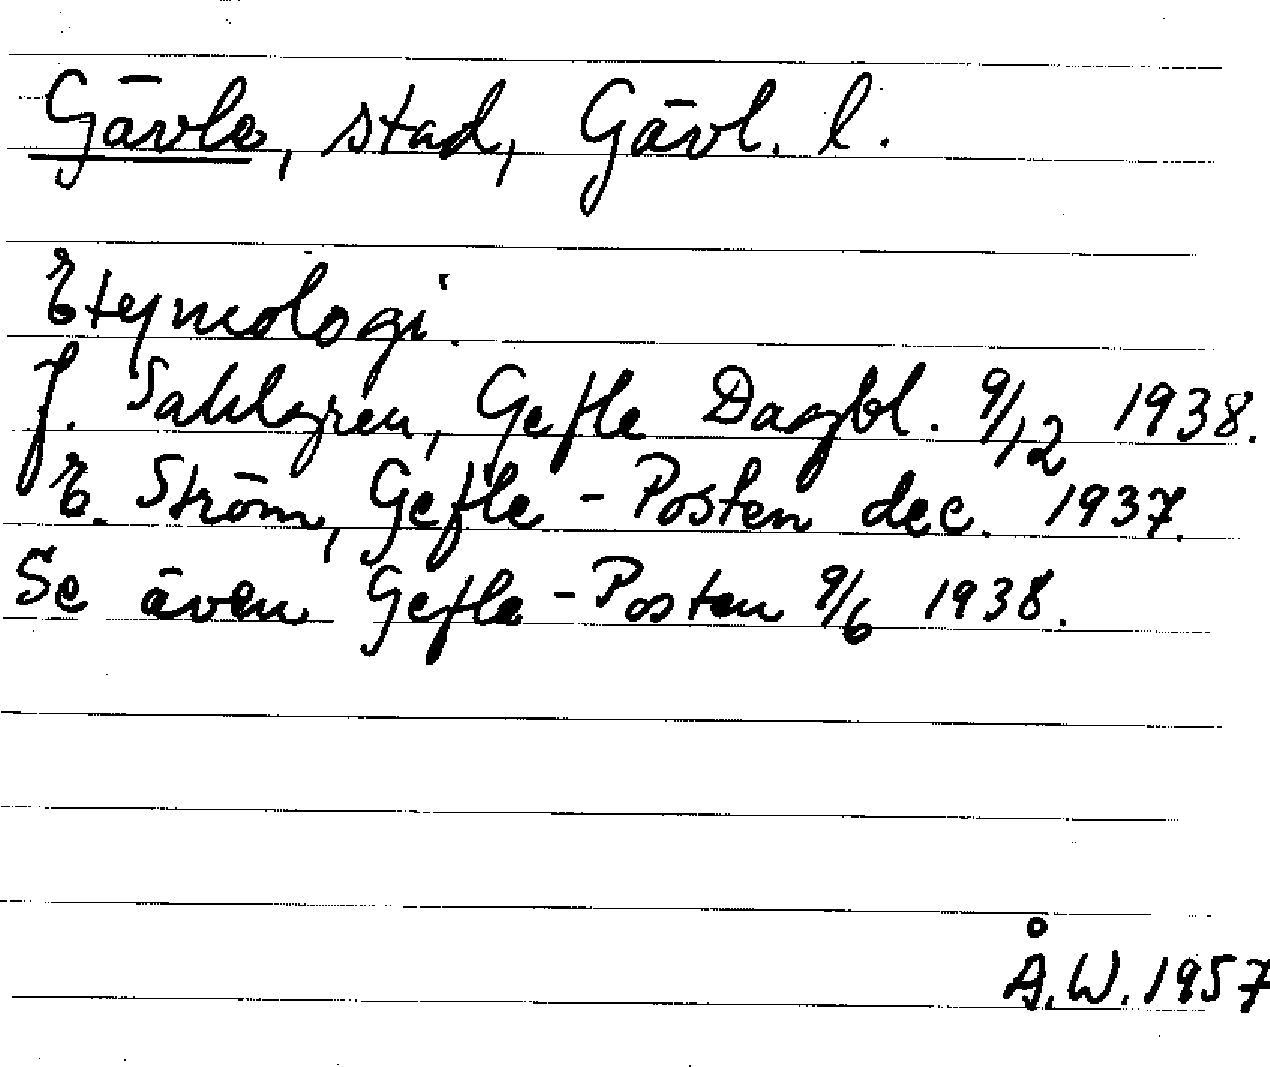 Gävle, stad, Gävl. l.
Etymologi.
J. Sahlgren, Gefle Dagbl. 9/12 1938.
E. Ström, Gefle-Posten dec. 1937.
Se även Gefle-Posten 9/6 1938.
Å.W. 1957